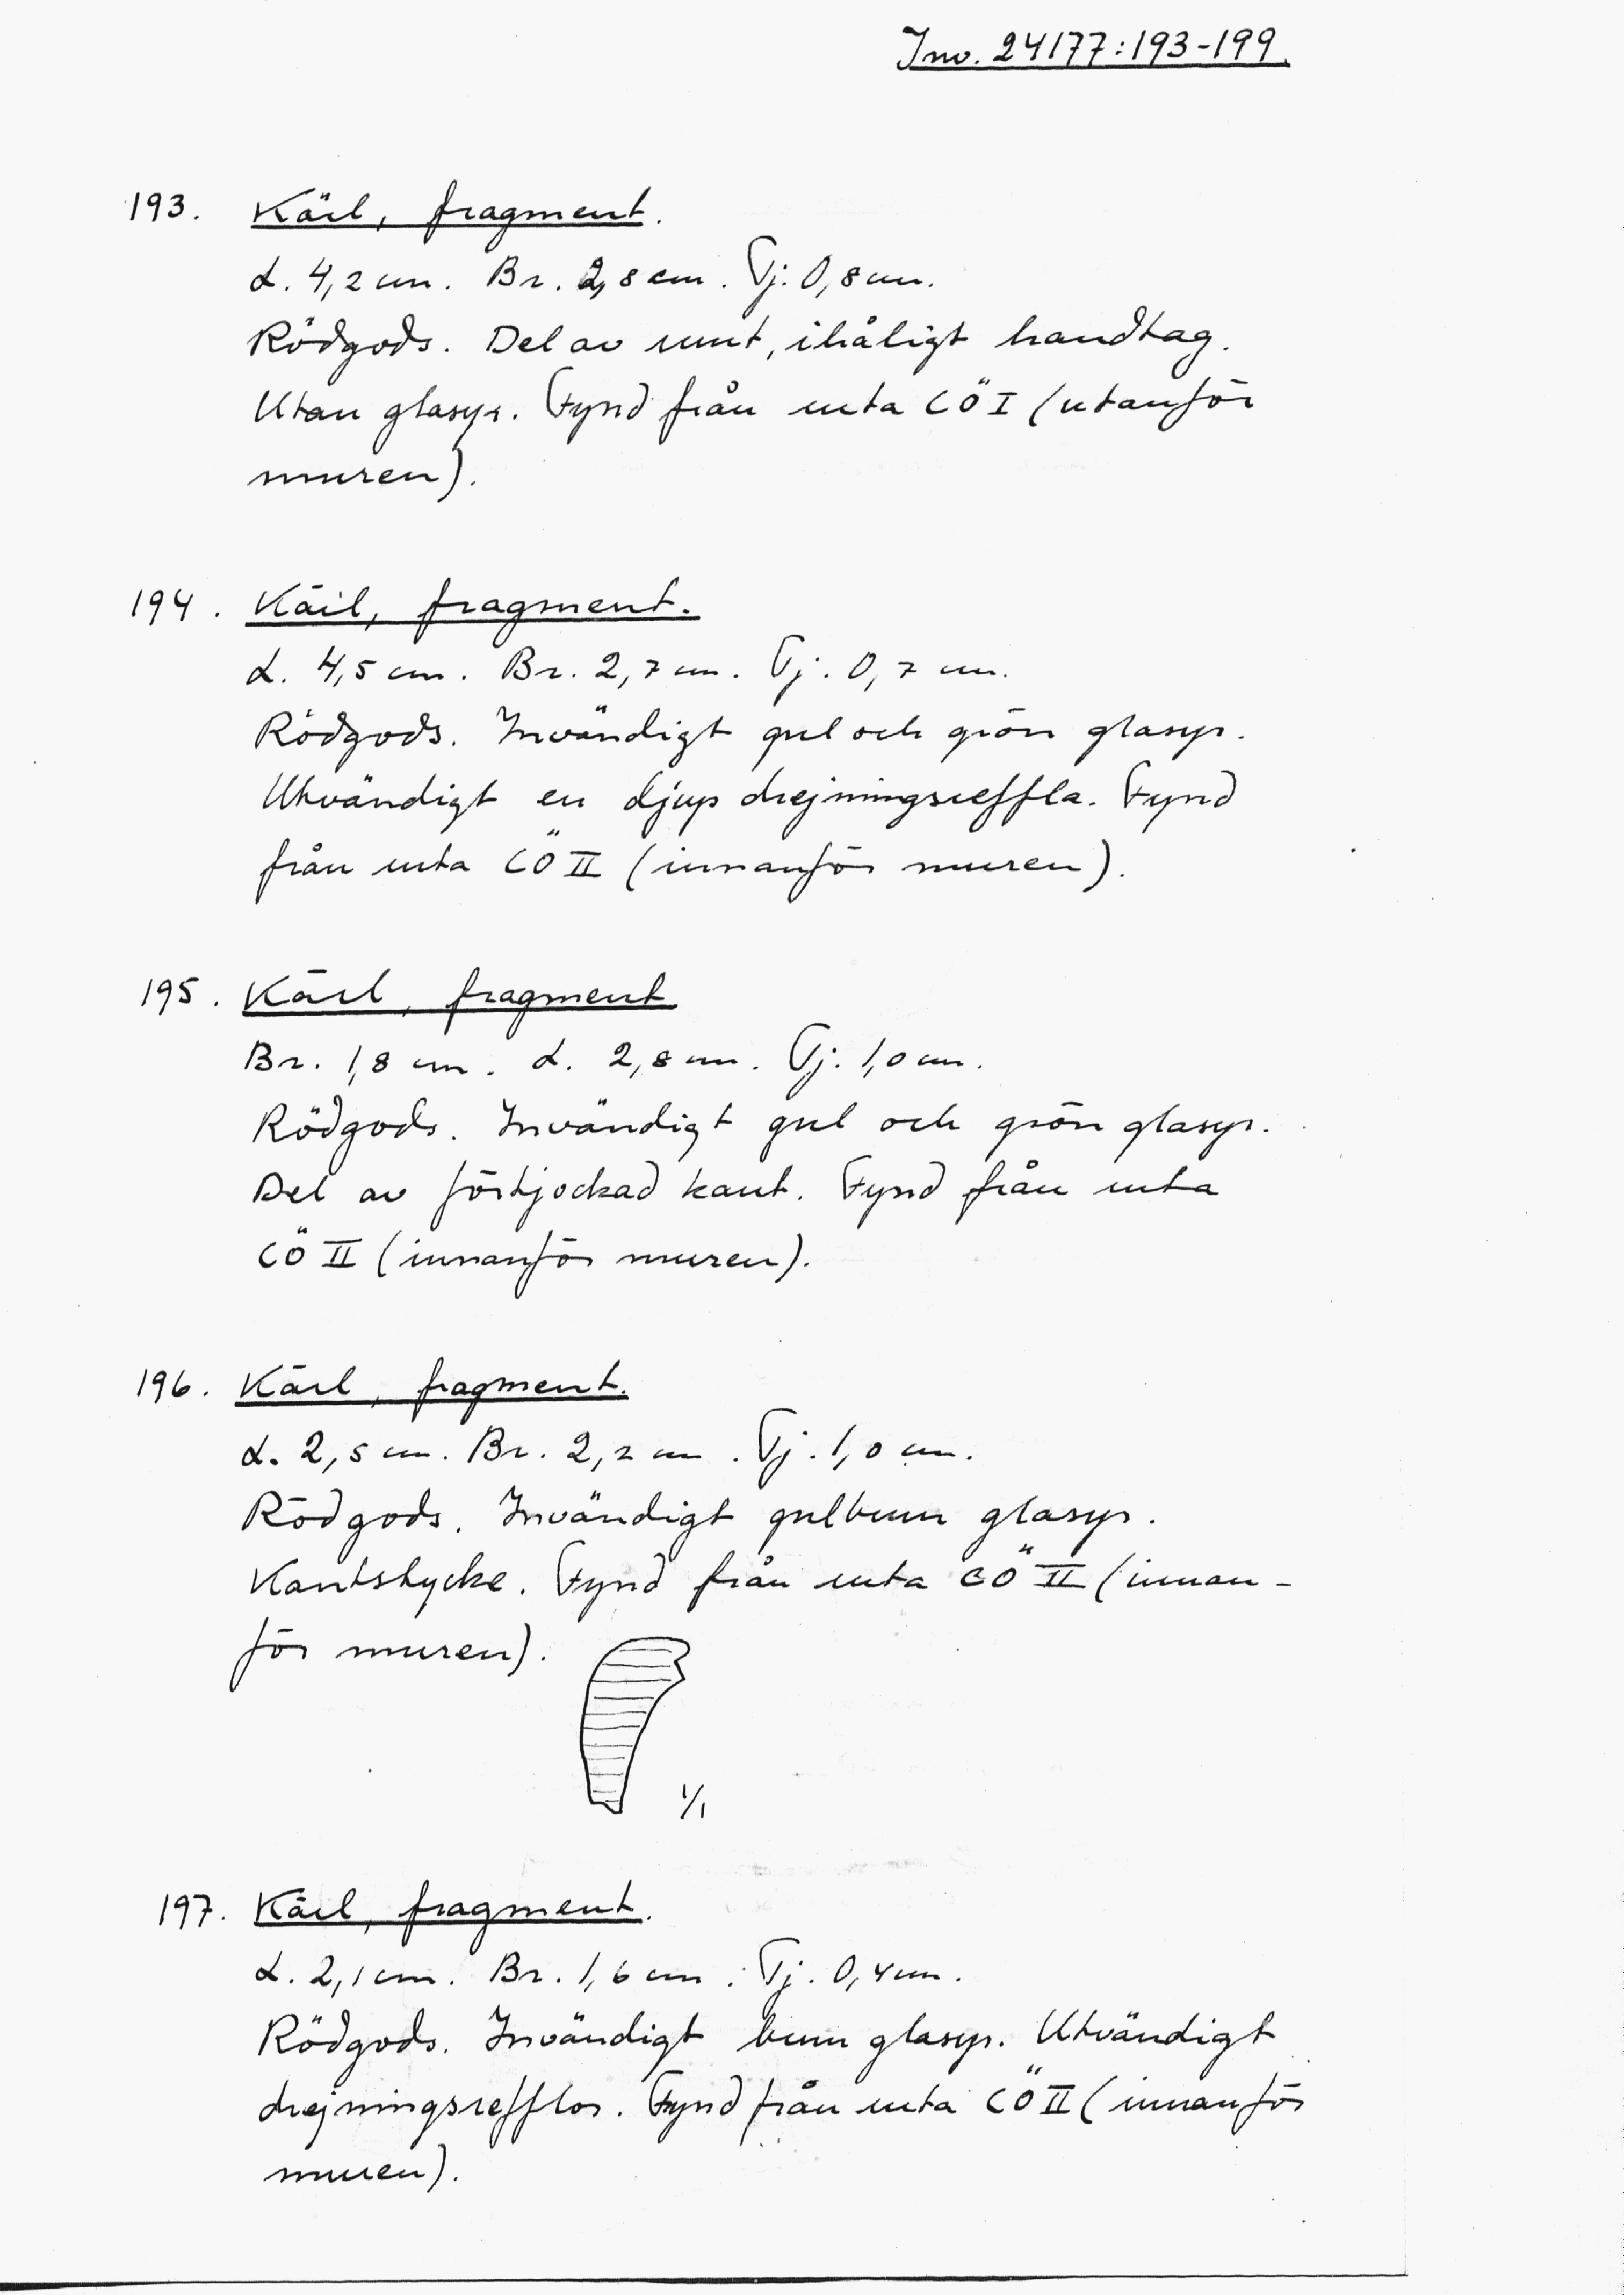 Inv. 24177:193-199.
193. Kärl, fragment.
L. 4,2 cm. Br. 2,8 cm. Tj. 0,8 cm.
Rödgods. Del av runt, ihåligt handtag.
Utan glasyr. Fynd från ruta CÖ I (utanför
muren).
194. Kärl, fragment.
L. 4,5 cm. Br. 2,7 cm. Tj. 0,7 cm.
Rödgods. Invändigt gul och grön glasyr.
Utvändigt en djup drejningsreffla. Fynd
från ruta CÖ II (innanför muren).
195. Kärl, fragment
Br. 1,8 cm. L. 2,8 cm. Tj. 1,0 cm.
Rödgods. Invändigt gul och grön glasyr.
Del av förtjockad kant. Fynd från ruta
CÖ II (innanför muren).
196. Kärl, fragment.
L. 2,5 cm. Br. 2,2 cm. Tj. 1,0 cm.
Rödgods. Invändigt gulbrun glasyr.
Kantstycke. Fynd från ruta CÖ II (innan-
för muren).
1/1
197. Kärl, fragment.
L. 2,1 cm. Br. 1,6 cm. Tj. 0,4 cm.
Rödgods. Invändigt brun glasyr. Utvändigt
drejningsrefflor. Fynd från ruta CÖ II (innanför
muren).